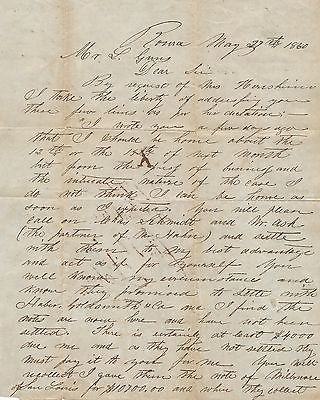 Roma May 27th 1860
Mr. L. Guns
Dear Sir
By request of Mr. Hershine
I take the liberty of addressing you
these few lines by his dictation:
"I wrote you a few days ago
that I should be home about the
12th or the 15th of next month
but from the of business and
the intricate nature of the case I
do not think I can be home as
soon as I expected. You will please
call on Schmidt and
(the partner of Mr. Haber) and settle
with them to my best advantage
and act as if for yourself You
well know my circumstances and
know they promised to settle with
Haber, Goldsmith & Co and I find the
notes are now here and have not been
settled. There is certain at least $4000
due me and as they have not settled they
must pay it to you for me. You will
recollect I gave them the note of
San Louis for $10700.00 and when they collect